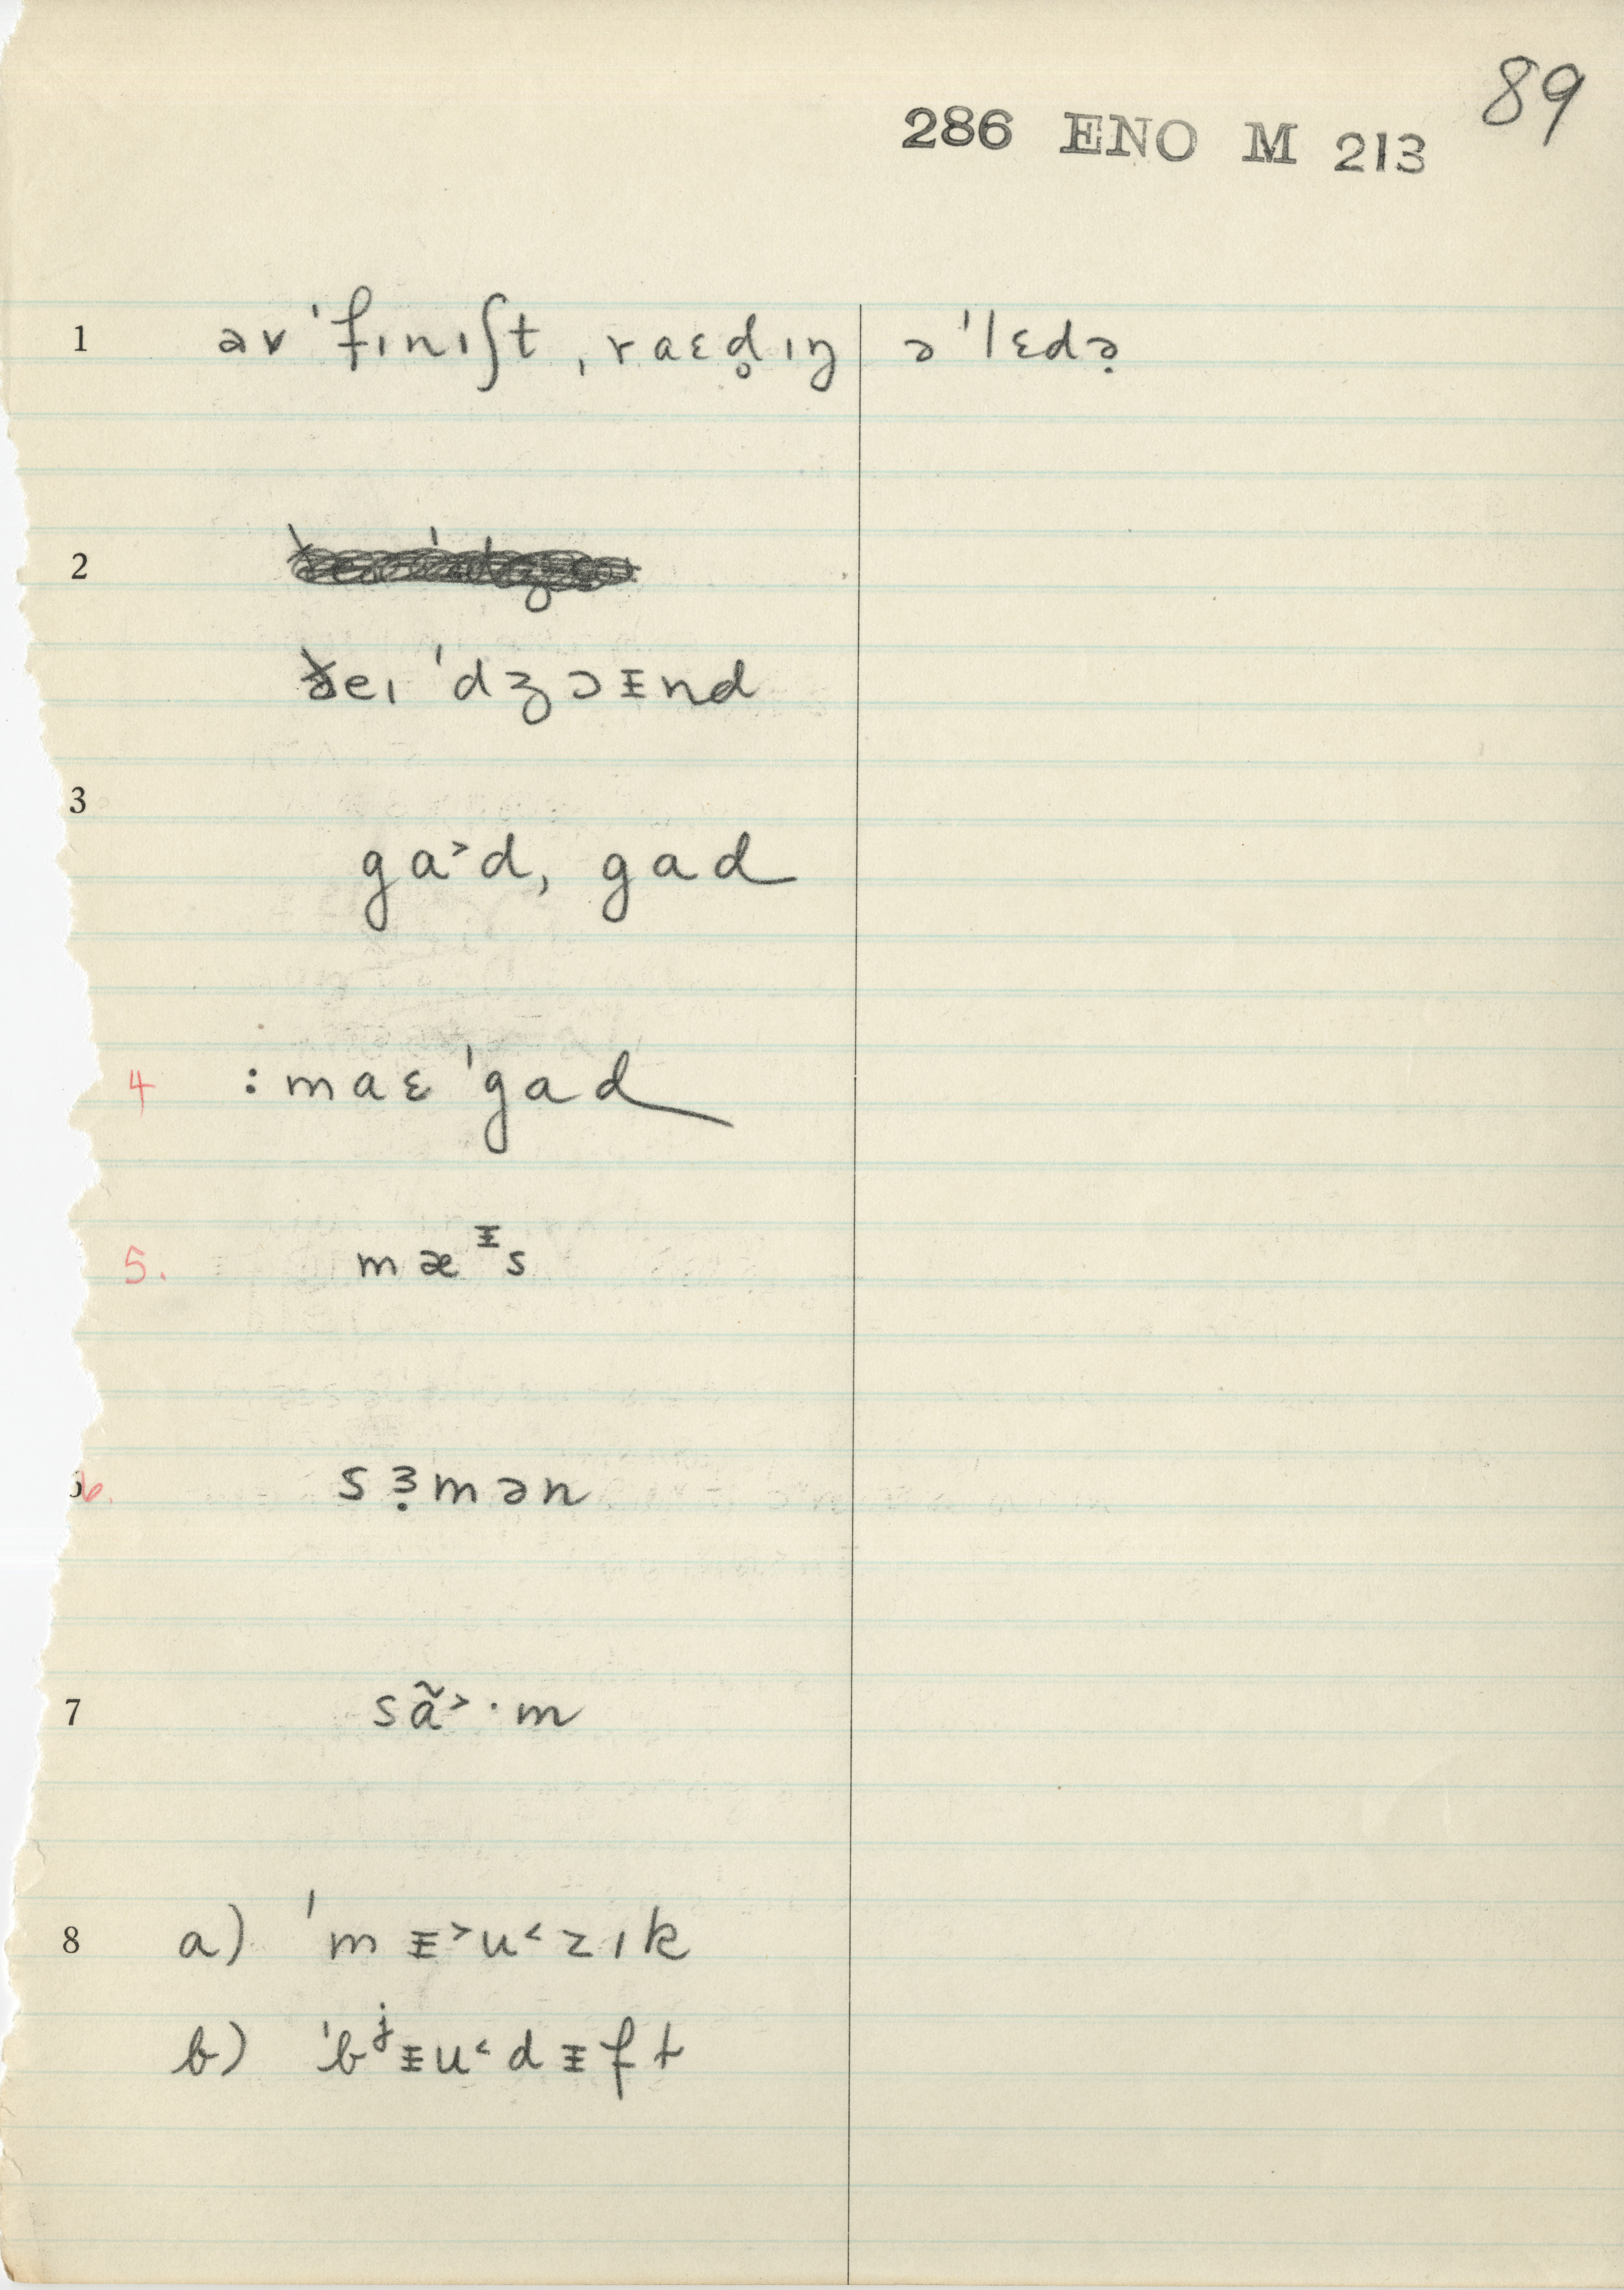 89
286 ENO M 213
1 əv ˈfɪnɪʃt ˌraɛd̥ɪŋ ə ˈlɛdə̣
2
ðeɪ ˈdʒɔᵻnd
3
ga˃d, gad
4 : maɛ ˈgad
5. mæᵻs
6. sɜ̣mən
7 sã˃·m
8 a) ˈmᵻ˃u˂zɪk
b) ˈbʲᵻu˂dᵻft